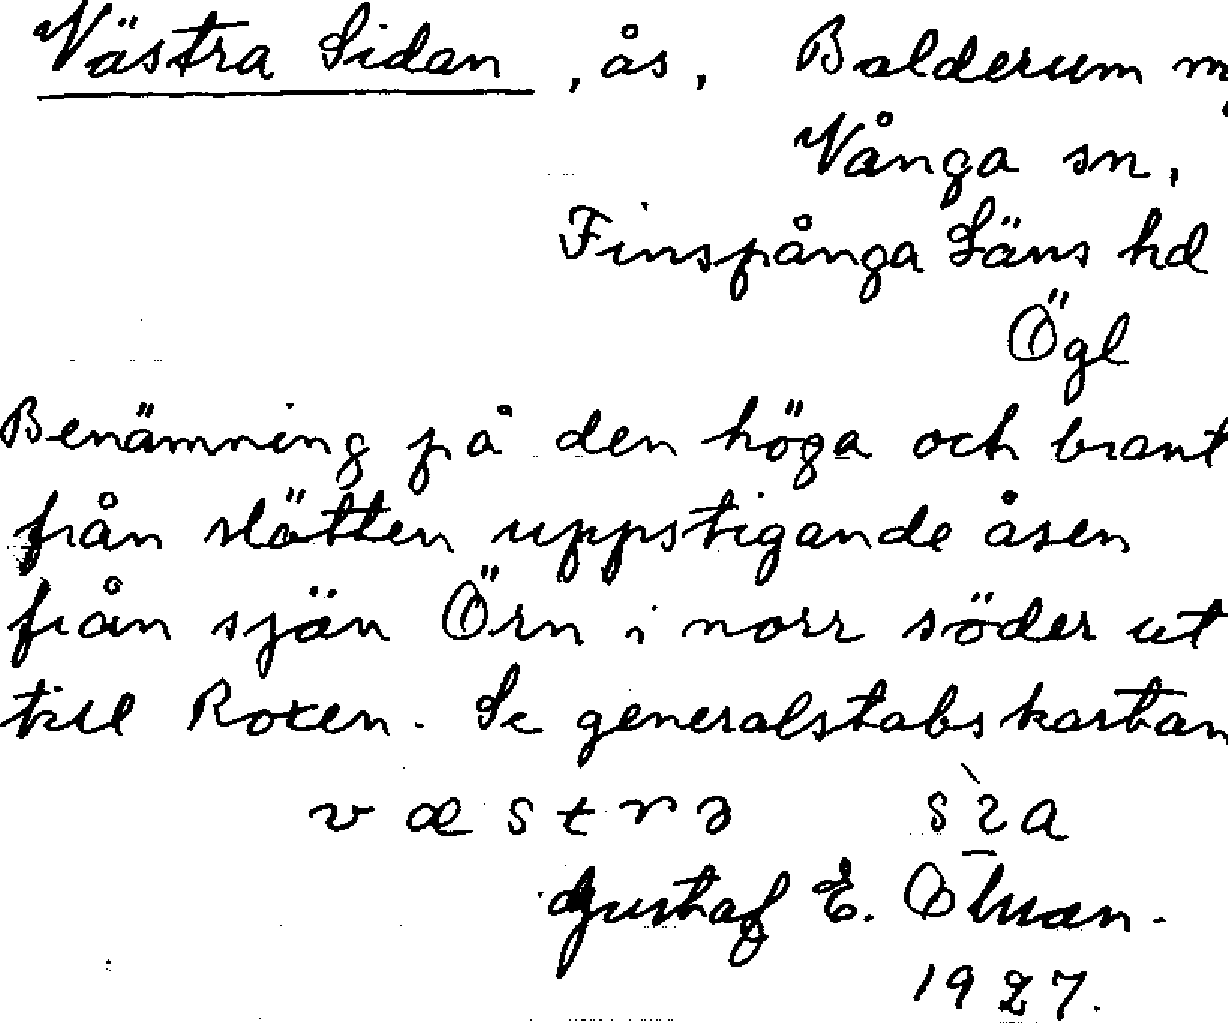 Västra Sidan, ås, Balderum m
Vånga sn,
Finspånga Läns hd
Ögl
Benämning på den höga och brant
från slätten uppstigande åsen
från sjön Örn i norr söder ut
till Roxen. Se generalstabskartan
væstrə
Gustaf E.
1927.